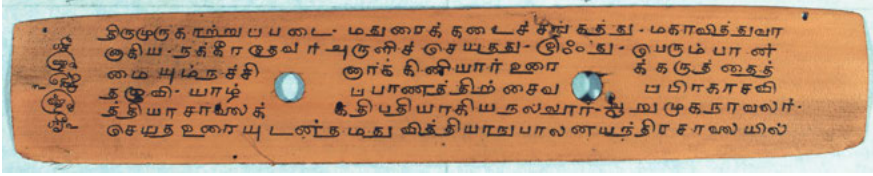 திருமுருகாற்றுப்படை- மதுரைக் கடைச்சங்கத்து- மகாவித்துவா
னாகிய- நக்கீரதேவர் அருளிச் செய்தது- இஃது- பெரும்பான்
மையும் நச்சி னார்க்கினியார் உரை க் கருத் தைத்
தழுவி- யாழ் ப்பாணத்தில் சைவ ப்பிரகாசவி
த்தியாசாலைக் கதிபதியாகிய நல்லூர்- ஆறுமுகநாவலர்-
செய்த உரையுடன் தமது வித்தியாநுபாலனயந்திரசாலையில்